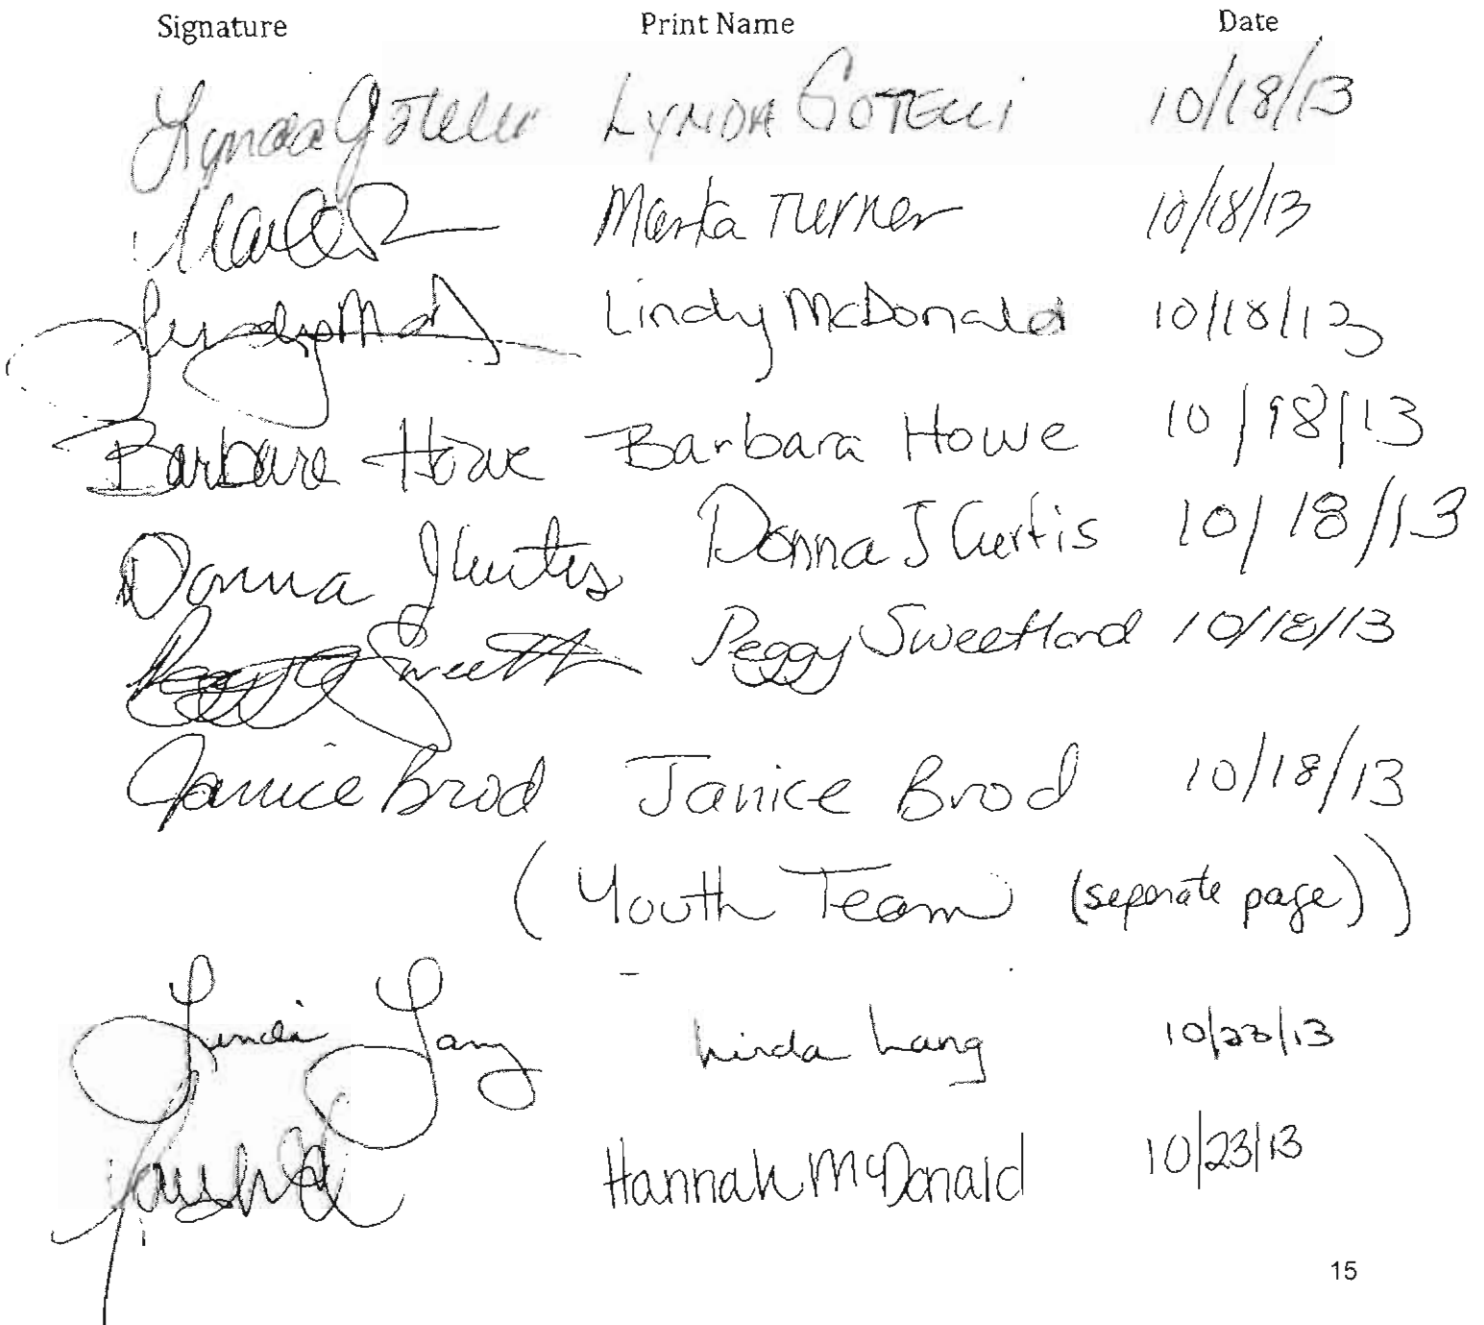 Signature Print Name Date
Lynda Gotelli LYNDA GOTELLI 10/18/13
Marta Turner 10/18/13
Lindy McDonald 10/18/13
Barbara Howe Barbara Howe 10/18/13
Donna J Curtis Donna J Curtis 10/18/13
Peggy Sweetland 10/18/13
Janice Brod Janice Brod 10/18/13
(Youth Team (seperate page))
Linda Lang Linda Lang 10/23/13
Hannah McDonald 10/23/13
15